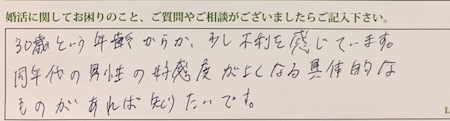 婚活に関してお困りのこと、ご質問やご相談がございましたらご記入下さい。
30歳という年齢からか、少し不利を感じています。
同年代の男性の好感度がよくなる具体的な
ものがあれば知りたいです。
L